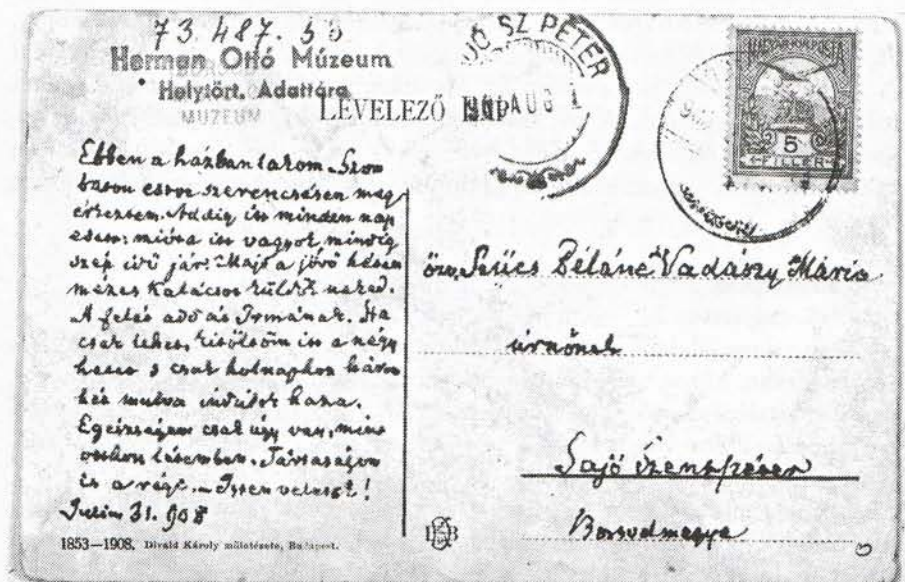 73.487.
Herman Ottó Múzeum
Helytört. Adattára
MUZEUM
LEVELEZŐ LAP
SZ PÉTER
AUG 1
MAGY. KIR. POSTA
5
FILLÉR
Ebben a házban lakom. Szom
baton este szerencsésen meg
érkeztem. Addig itt minden nap
esett: mióta itt vagyok mindig
szép idő jár. Majd a jövő héten
mézes kalácsot küldök neked.
A felét add át Irmának. Ha
csak lehet, kitöltöm itt a négy
hetet s csak holnaphoz három
hét mulva indulok haza.
Egészségem csak úgy van, mint
otthon létemben. Társaságom
is a régi. – Isten veletek!
Julius 31. 908
1853—1908. Divald Károly műintézete, Budapest.
özv. Szücs Béláné Vadászy Mária
úrnőnek
Sajó Szentpéter
Borsodmegye